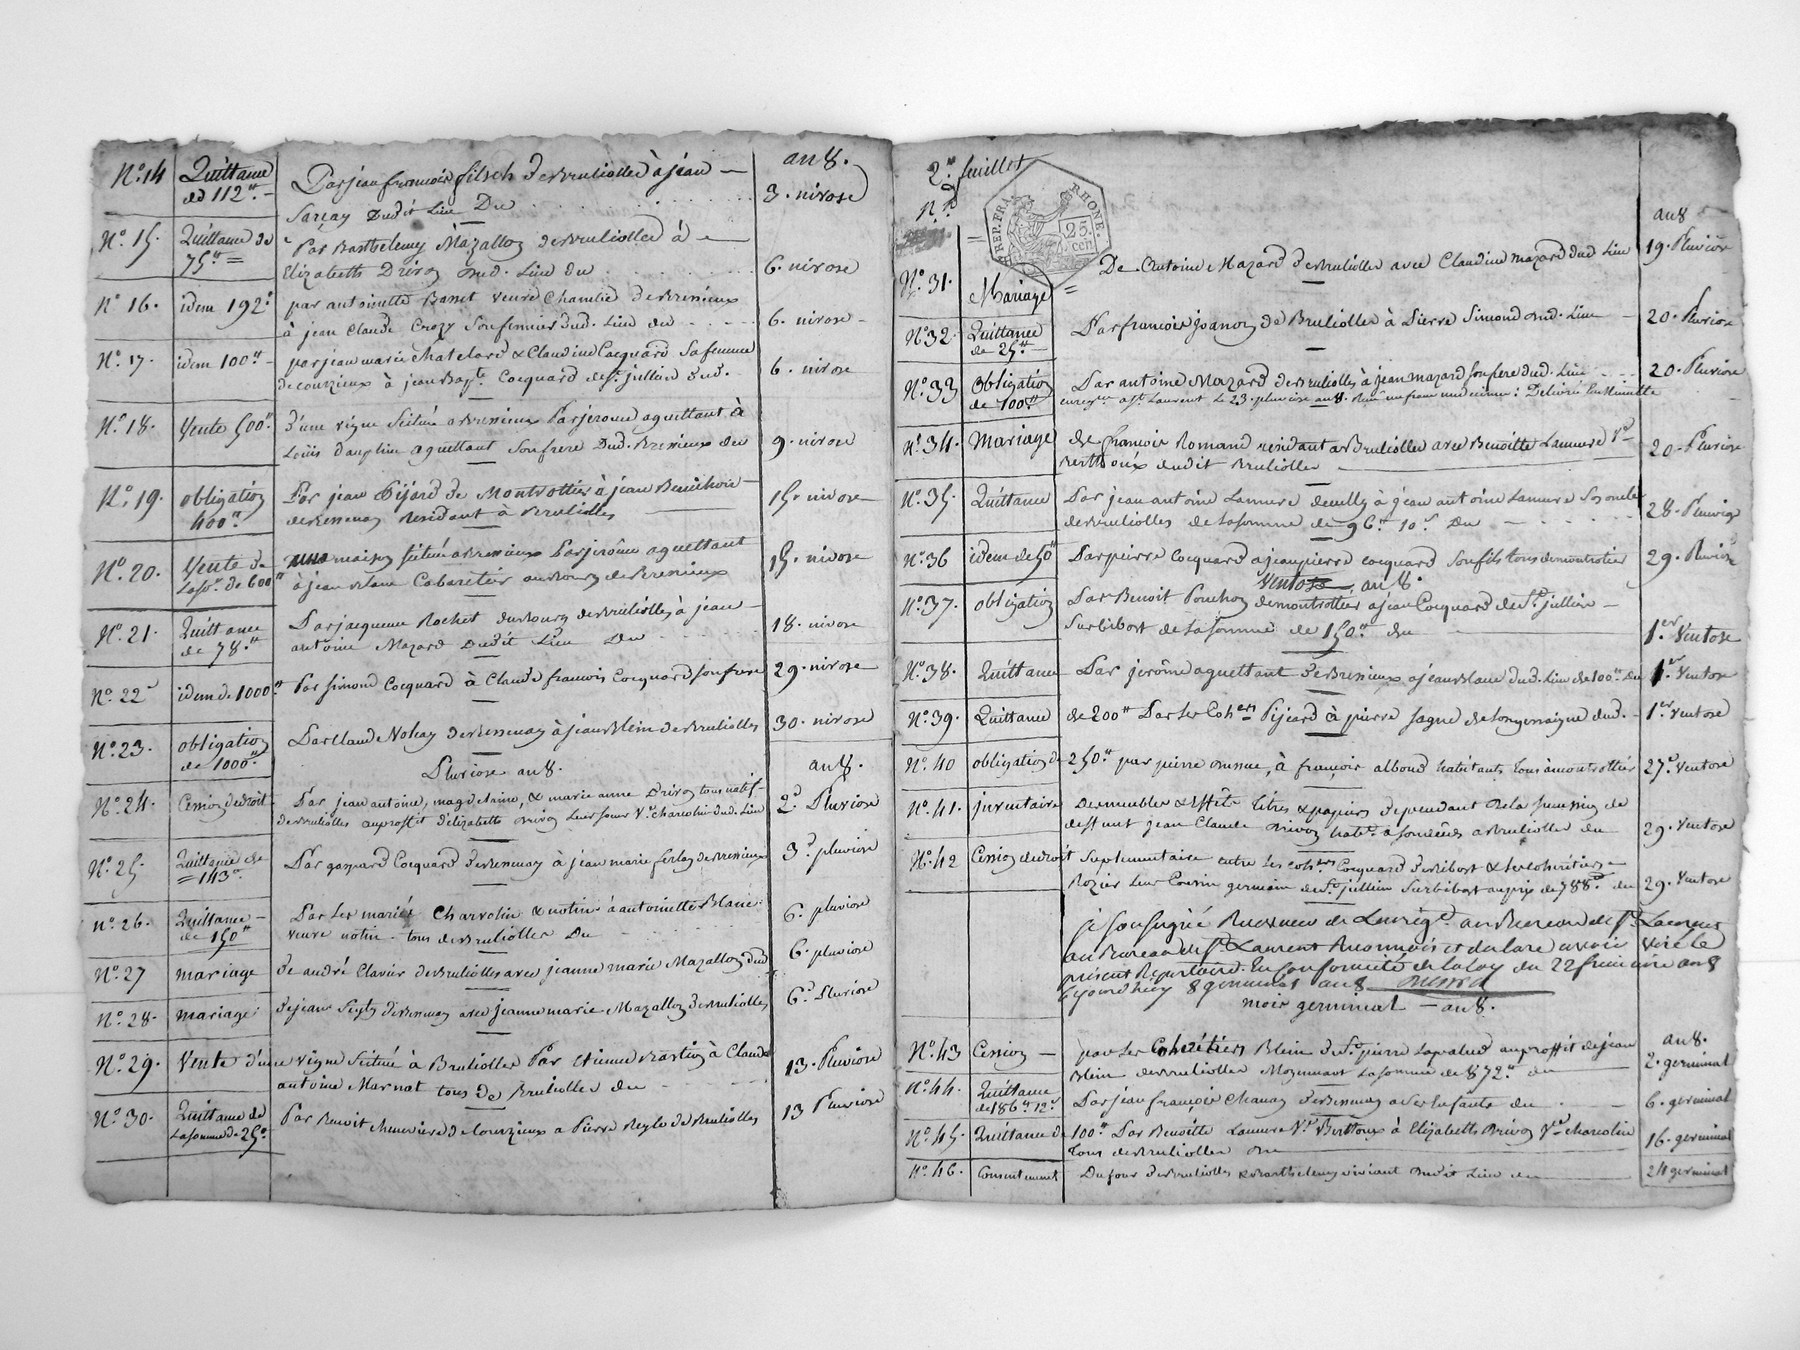 an 8.
N.° 14 Quittance de 112.tt Par jean francois filsch de Brulliolles à jéan 3. nivose
Sarcay Dudit Lieu Du
N.° 15. Quittance de 75.tt Par Barthelemy Mazallon de Brulliolles à
Elizabeth Drivon dud. Lieu du 6. nivose
N.° 16. idem 192.tt par antoinette Basset veuve Chambe de Bressieux
à jean Claude Crozy son fermier dud. Lieu du 6. nivose
N.° 17. idem 100.tt par jean marie Chatelard & Claudine Cocquard sa femme
de courzieux à jean Bap.te Cocquard de S.t jullien dud. 6. nivose
N.° 18. Vente 500.tt d'une vigne Scitué a Bressieux Par jerome aguettant à
Louis dauphin aguettant son frere Dud. Bressieux du 9. nivose
N.° 19. obligation 400.tt Par jean Pijard de Montrottier à jean
de Bessenay Residant à Brulliolles 15. nivose
N.° 20. Vente de La so.e de 600.tt maison scitué a Bressieux Par jerôme aguettant
à jean Cabaretier au bourg de Bressieux 15. nivose
N.° 21. Quittance de 78.tt Par jacqueme Rochet du bourg de Brulliolles à jean
antoine Mazard Dudit Lieu Du 18. nivose
N.° 22 idem de 1000.tt Par Simond Cocquard à Claude francois Cocquard son frere 29. nivose
N.° 23. obligation de 1000.tt Par Claude Nolhay de Bessenay à jean Blein de Brulliolles 30. nivose
Pluviose an 8. an 8.
N.° 24. Cession de droit Par jean antoine, magdelaine, & marie anne Drivon tous natif
de Brulliolles au proffit d'élizabeth Drivon Leur soeur V.e charvolin dud. Lieu 2.d Pluviose
N.° 25. Quittance de 143.tt Par gaspard Cocquard de Bessenay à jean marie ferlay de Bressieux 3.d pluviose
N.° 26. Quittance de 150.tt Par Les mariés Charvolin & notin à antoinette Blanc
veuve notin tous de Brulliolles Du 6. pluviose
N.° 27 mariage de andré Clavier de Brulliolles avec jeanne marie Mazallon dud 6. pluviose
N.° 28. mariage de jean de Bessenay avec jeanne marie Mazallon de Brulliolles 6.d Pluviose
N.° 29. Vente d'une vigne Scitué à Brulliolles Par Etienne Bastion à Claude
antoine Marnat tous de Brulliolles du 13. Pluviose
N.° 30. Quittance de La somme de 25.tt Par Benoit de Courzieux a Pierre Reyle de Brulliolles 13 Pluviose
2.e feuillet
N.°
REP. FRA. RHONE.
25. cen.
an 8
N.° 31. Mariage De Antoine Mazard de Brulliolles avec Claudine mazard dud Lieu 19. Pluviôse
N.° 32. Quittance de 25.tt Par francois joanon de Brulliolles à Pierre Simond dud. Lieu 20. Pluviose
N.° 33 Obligation de 100.tt Par antoine Mazard de Brulliolles à jean mazard son frere dud. Lieu 20. Pluviose
enreg.ré a S.t Laurent Le 23. pluviose an 8. Recu un franc un decime: Delivré En Minutte
N.° 34. Mariage de francois Romand residant a Brulliolles avec Benoitte Lamure V.e
Berthoux dudit Brulliolles 20. Pluviose
N.° 35. Quittance Par jean antoine Lamure à jean antoine Lamure
de Brulliolles de La somme de 96.tt 10.s Du 28. Pluviose
N.° 36 idem de 50.tt Par pierre Cocquard a jean pierre cocquard son fils tous de montrotier 29. Pluviôse
Ventose an 8.
N.° 37. obligation Par Benoit Ponchon de montrottier a jean Cocquard de S.t jullien
Sur bibost de La somme de 150.tt du 1.er Ventose
N.° 38. Quittance Par jerôme aguettant de Bressieux a jean Blanc dud. Lieu de 100.tt Du 1.er Ventose
N.° 39. Quittance de 200.tt Par Les Coh.ers Pijard à pierre Sagne de Longessaigne dud. 1.er Ventose
N.° 40 obligation de 250.tt par pierre à francois albond habitants tous à montrottier 27.e Ventose
N.° 41. inventaire De meubles & Effets titres & papiers dependant de la succession de
deffunt jean Claude Drivon a Brulliolles du 29. Ventose
N.° 42 Cession de droit Suplementaire entre Les coh.ers Cocquard de Bibost & les cohéritiers
Rozier Leur Cousin germain de S.t jullien Sur bibost au prix de 788.tt du 29. Ventose
je soussigné Receveur de L'enreg.t au Bureau de S.t Laurent
au Bureau de S.t Laurent et declare avoir visé le
présent Repertoire. En Conformité de La Loy du 22 frimaire an 8
Ce jourd'huy 8 germinal an 8
mois germinal an 8.
an 8.
N.° 43 Cession par Les Cohéritiers Blein de S.t pierre Lapalud au proffit de jean
Blein de Brulliolles Moyennant La somme de 872.tt du 2. germinal
N.° 44. Quittance de 186.tt 12.s Par jean françois Chanay de Bessenay a ses Enfants du 6. germinal
N.° 45. Quittance de 100.tt Par Benoitte Lamure V.e Berthoux à Elizabeth Drivon V.e charvolin
tous de Brulliolles du 16. germinal
N.° 46. Consentement Dufour de Brulliolles & Barthelemy vivient dudit Lieu du 24 germinal